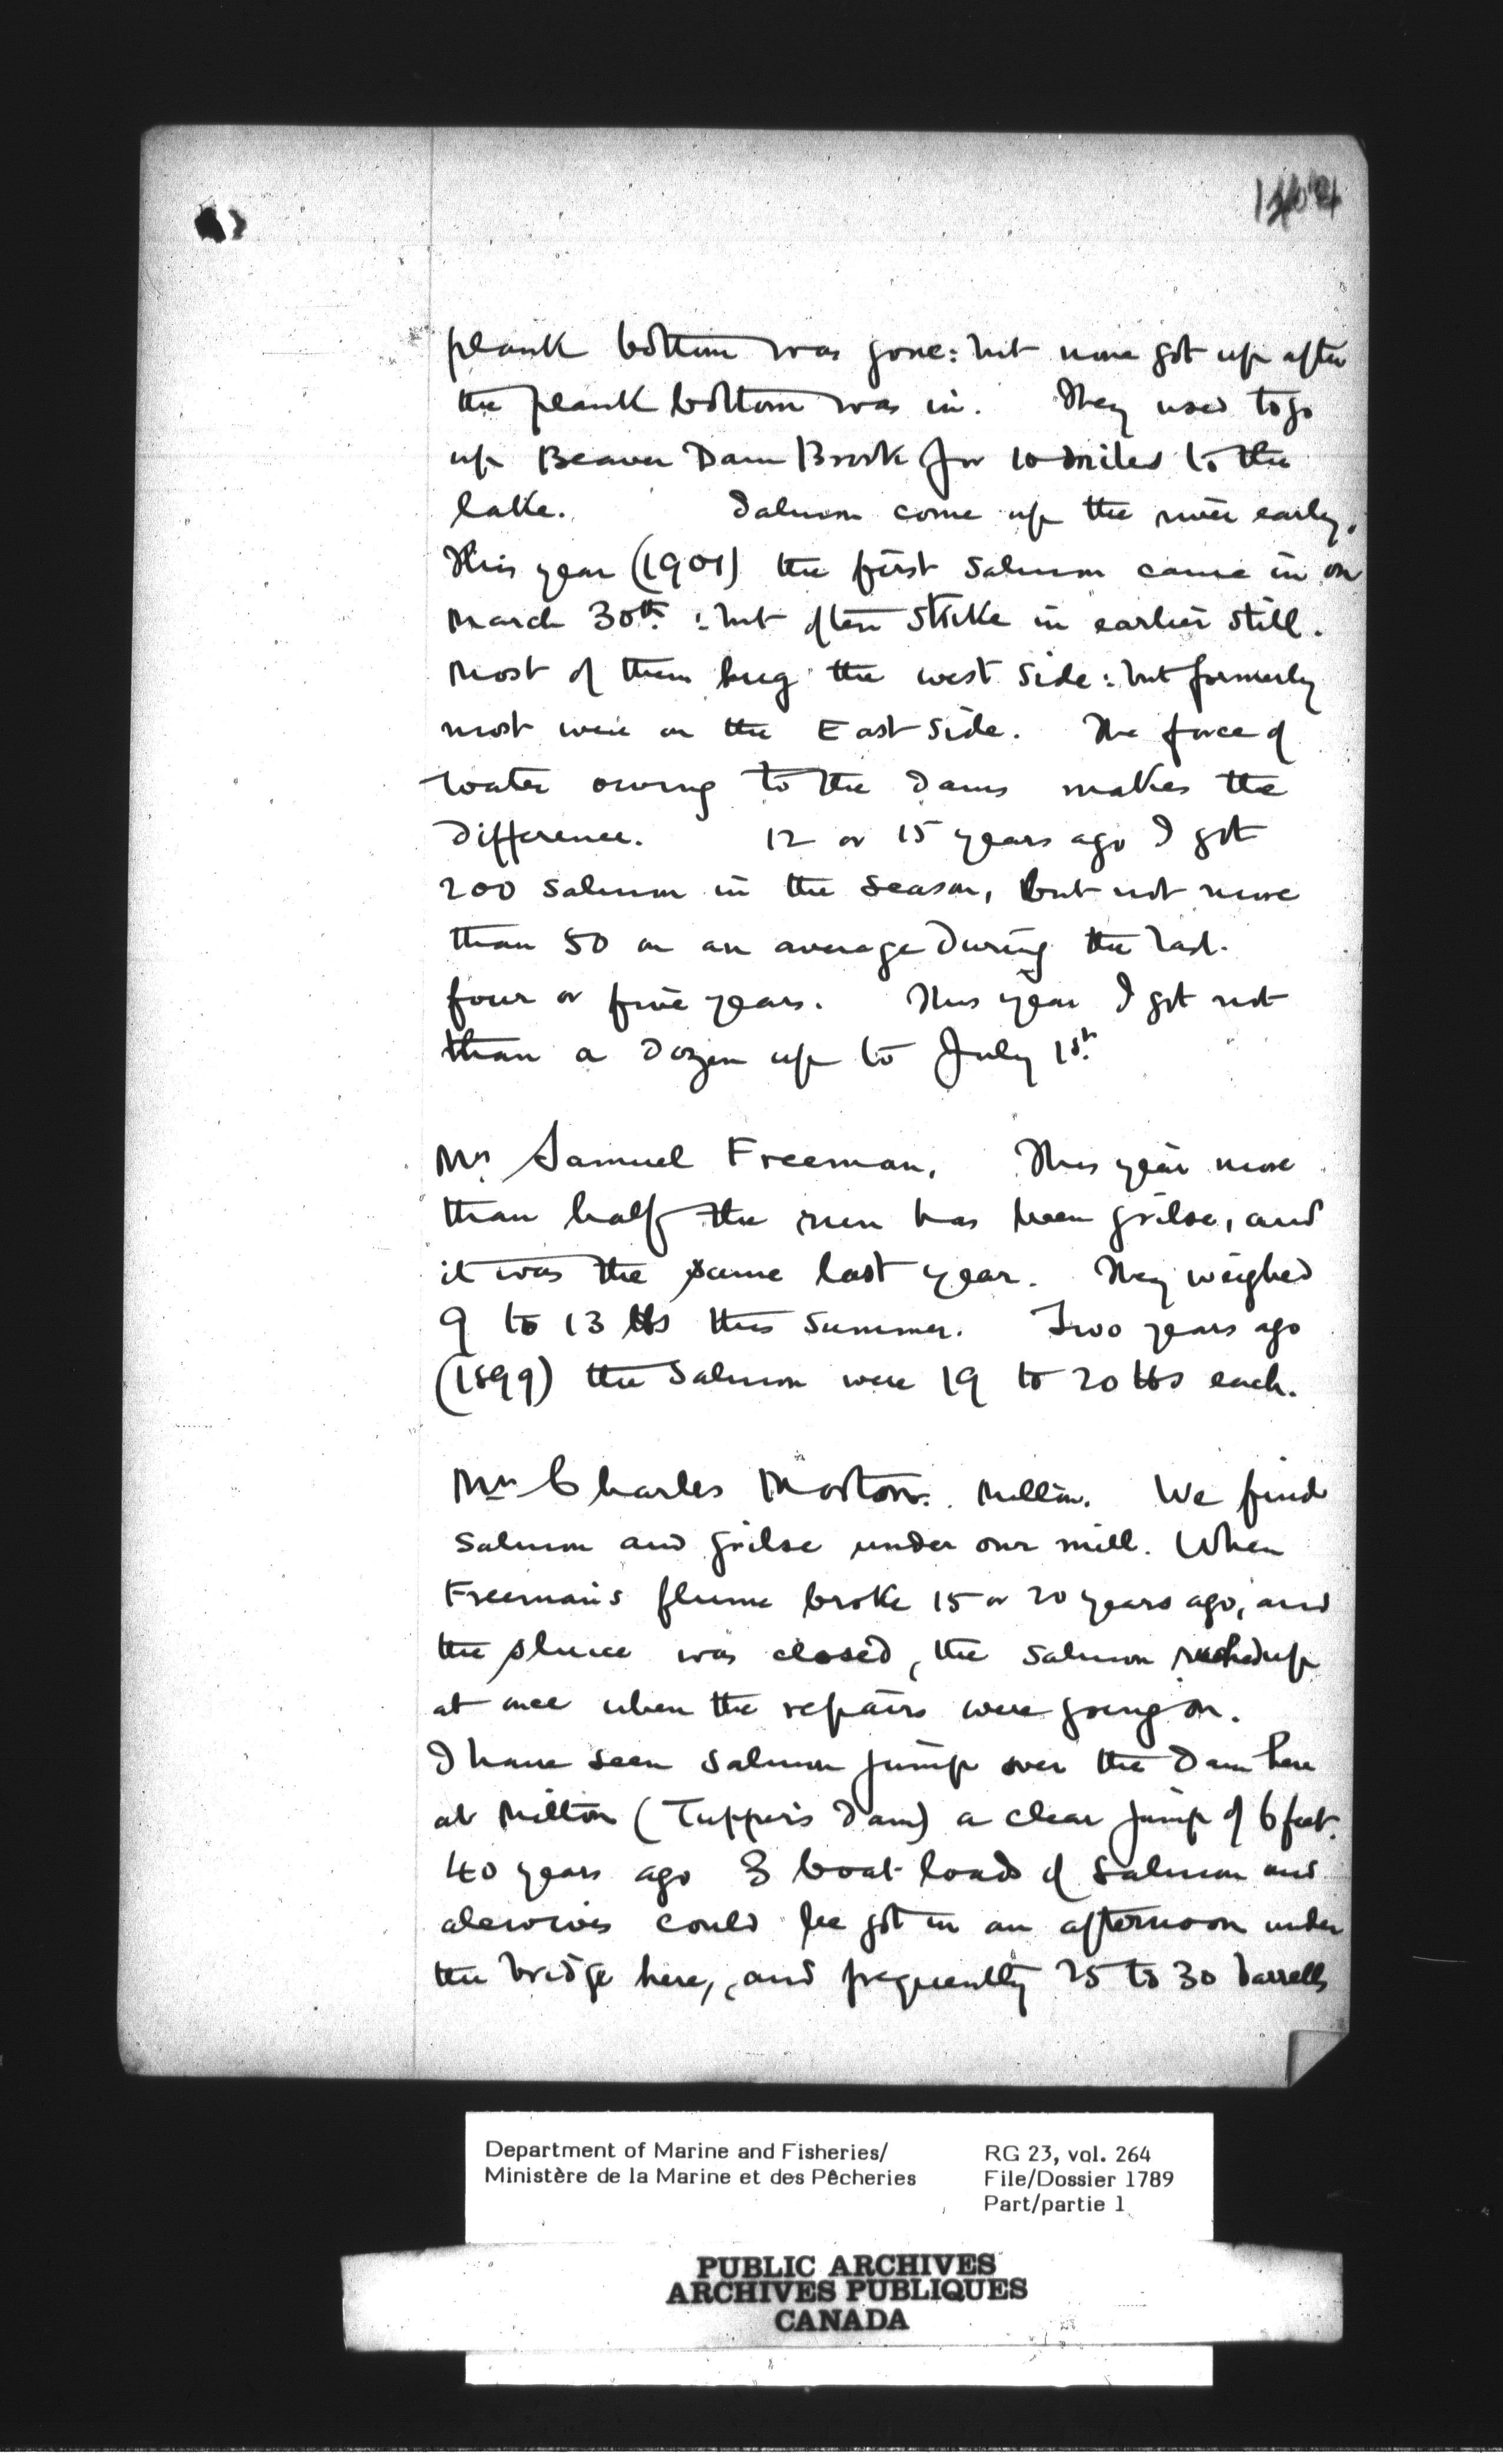 plank bottom was gone: but none got up after
the plank bottom was in. They used to go
up Beaver Dam Brook for 10 miles to the
lake. Salmon come up the river early.
This year (1901) the first salmon came in on
March 30th: but often strike in earlier still.
Most of them hug the west side: but formerly
most were on the East side. The force of
water owing to the dams makes the
difference. 12 or 15 years ago I got
200 salmon in the season, but not more
than 50 on an average during the last
four or five years. This year I got not
than a dozen up to July 1st.
Mr Samuel Freeman. This year more
than half the run has been grilse, and
it was the same last year. They weighed
9 to 13 lbs this summer. Two years ago
(1899) the Salmon were 19 to 20 lbs each.
Mr Charles Morton. Milton. We find
salmon and grilse under our mill. When
Freeman's flume broke 15 or 20 years ago, and
the sluice was closed, the salmon rushed up
at once when the repairs were going on.
I have seen salmon jump over the dam here
at Milton (Tupper's Dam) a clear jump of 6 feet.
40 years ago 3 boat loads of salmon and
alewives could be got in an afternoon under
the bridge here, and frequently 25 to 30 barrells
Department of Marine and Fisheries/
Ministère de la Marine et des Pêcheries
RG 23, vol. 264
File/Dossier 1789
Part/partie 1
PUBLIC ARCHIVES
ARCHIVES PUBLIQUES
CANADA